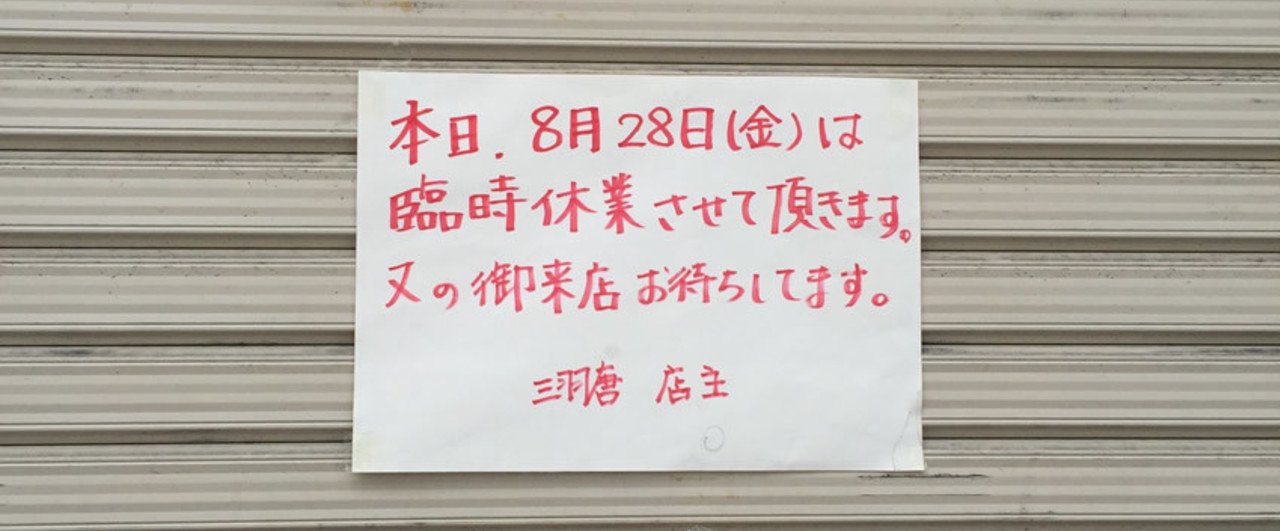 本日、8月28日(金)は
臨時休業させて頂きます。
又の御来店お待ちしてます。
三羽唐 店主